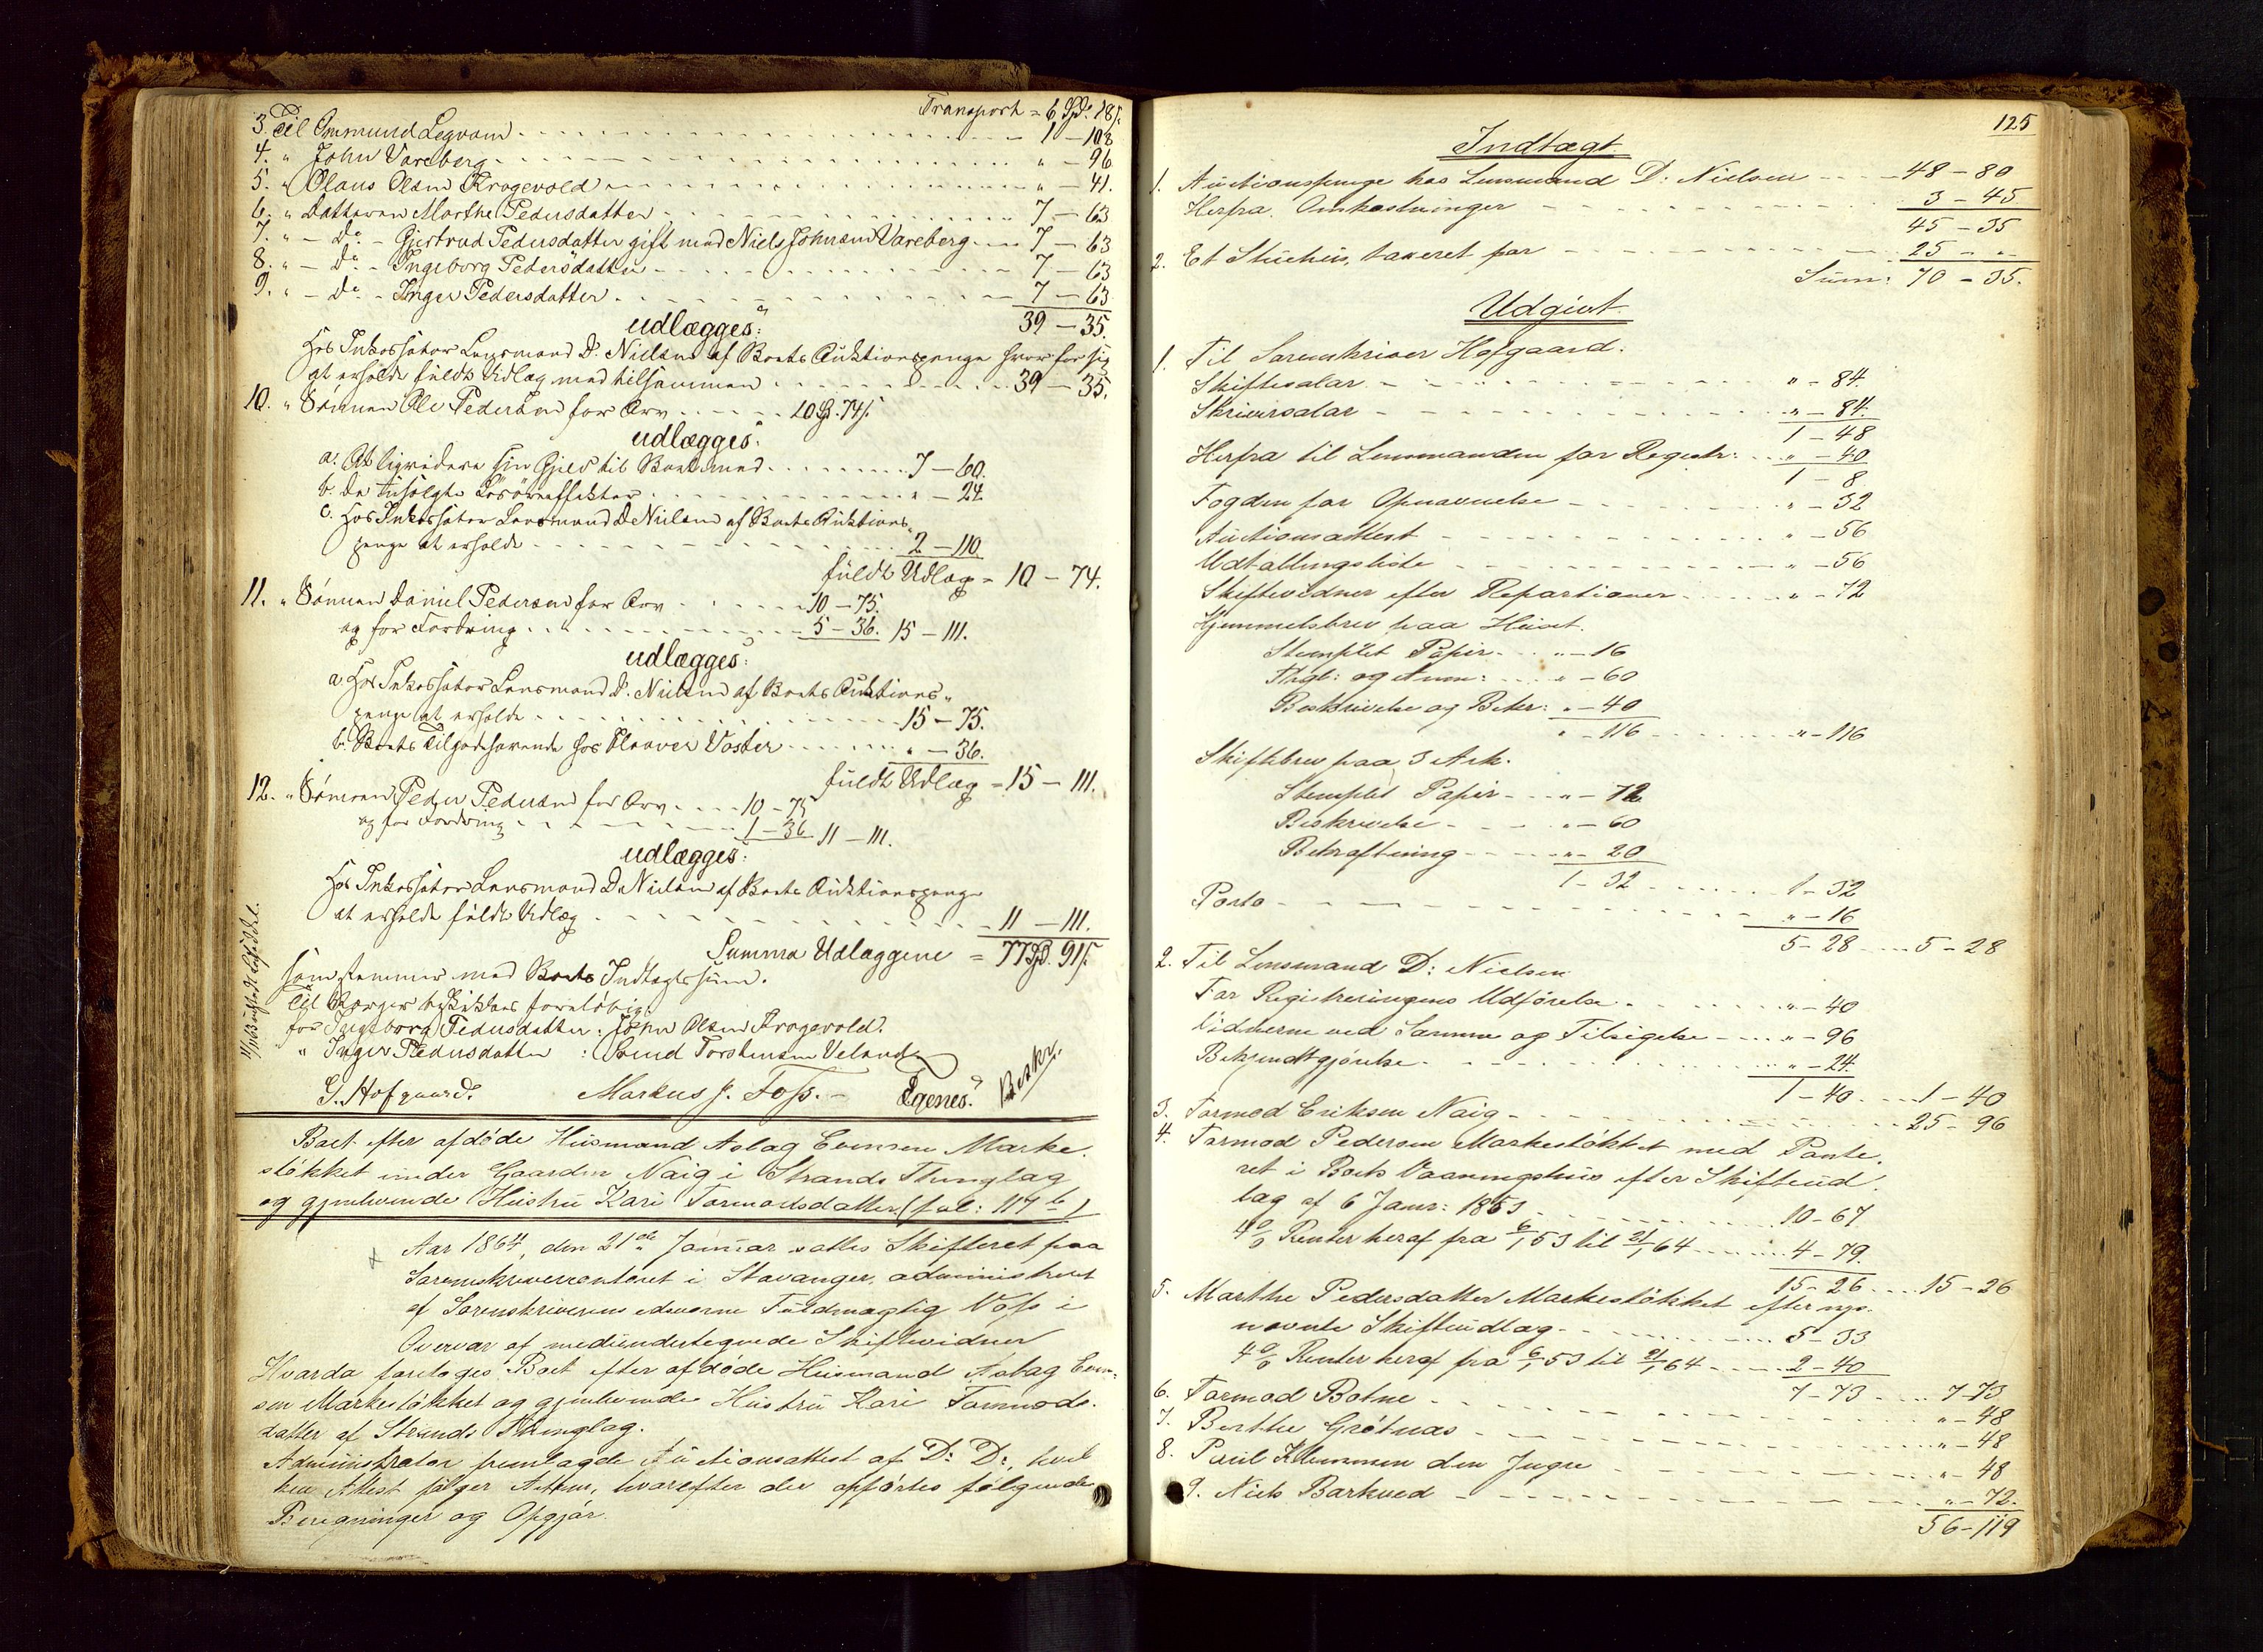 Transport = 6 Spd. 18 s.
3. Til Ommund Legvam 1 - 108
4. " John Vareberg " - 96
5. " Olaus Olsen Krogevold " - 41.
6. " Datteren Marthe Pedersdatter 7 - 63
7. " - Do - Gjertrud Pedersdatter gift med Niels Johnsen Vareberg 7 - 63
8. " - Do - Ingeborg Pedersdatter 7 - 63
9. " - Do - Inger Pedersdatter 7 - 63
39 - 35.
udlægges:
Hos Inkassator Lensmand D. Nielsen af Boets Auktionspenge hver for sig
at erholde fuldt Udlæg med tilsammen 39 - 35.
10. " Sønnen Ole Pedersen for Arv 10 Spd. 74 s.
udlægges:
a. At liqvidere sin Gjæld til Boet med 7 - 60.
b. De usolgte Løsøreffekter " - 24
c. Hos Inkassator Lensmand D. Nielsen af Boets Auktions-
penge at erholde 2 - 110
fuldt Udlæg = 10 - 74.
11. " Sønnen Daniel Pedersen for Arv 10 - 75.
og for Fordring 5 - 36. 15 - 111.
udlægges:
a. Hos Inkassator Lensmand D. Nielsen af Boets Auktions-
penge at erholde 15 - 75.
b. Boets Tilgodehavende hos Vaster " - 36.
fuldt Udlæg = 15 - 111.
12. " Sønnen Peder Pedersen for Arv 10 - 75
og for Fordring 1 - 36 11 - 111.
udlægges:
Hos Inkassator Lensmand D. Nielsen af Boets Auktionspenge
at erholde fuldt Udlæg 11 - 111.
Summa Udlæggene = 77 Spd. 91 s.
som stemmer med Boets Indtægtssum.
Til Værger beskikkes foreløbig:
for Ingeborg Pedersdatter: John Olsen Krogevold.
" Inger Pedersdatter : Svend Torstensen Veland
G. Hofgaard. Markus J. Foss. - Egenes. Beskr.
Boet efter afdøde Huusmand Aslag Evensen Marke-
støkket under Gaarden Naig i Strands Thinglag
og gjenlevende Hustru Kari Tormodsdatter (fol: 117 b)
Aar 1864, den 21de Januar sattes Skifteret paa
Sorenskrivercontoret i Stavanger, administreret
af Sorenskriverens edsvorne Fuldmægtig Voss i
Overvær af medundertegnede Skiftevidner
Hvorda foretoges Boet efter afdøde Huusmand Aslag Even-
sen Markestøkket og gjenlevende Hustru Kari Tormods-
datter af Strands Thinglag.
Administrator fremlagde Auctionsattest af D: D:, hvil-
ken Attest følger Acten, hvorefter der opførtes følgende
Beregninger og Opgjør
125
Indtægt.
1. Auctionspenge hos Lensmand D: Nielsen 48 - 80
Herfra Omkostninger 3 - 45
45 - 35
2. Et Stuehus, taxeret for 25 - "
Sum: 70 - 35.
Udgivt
1. Til Sorenskriver Hofgaard:
Skiftesalær " - 84
Skriversalær " - 84.
1 - 48
Herfra til Lensmanden for Registr: " - 40
1 - 8
Fogden for Opnævnelse " - 32
Auctionsattest " - 56
Udtallingsliste " - 56
Skiftevidner efter Repartioner " - 72
Hjemmelsbrev paa Huset
Stemplet Papir " - 16
Thgl: og Ann: " - 60
Beskrivelse og Bekr: " - 40
" - 116 " - 116
Skiftebrev paa 3 Ark.
Stemplet Papir " - 72
Beskrivelse " - 60
Bekræftning " - 20
1 - 32 1 - 32
Porto " - 16
5 - 28 5 - 28
2. Til Lensmand D: Nielsen
For Registreringens Udførelse " - 40
Vidnerne ved Samme og Tilsigelse " - 96
Bekjendtgjørelse " - 24
1 - 40 1 - 40
3. Tormod Eriksen Naig 25 - 96
4. Tormod Pedersen Markestøkket med Pante-
ret i Boets Vaaningshus efter Skifteud-
læg af 6 Janr: 1853 10 - 67
4 % Renter heraf fra 6/1 53 til 21/1 64 4 - 79.
15 - 26 15 - 26
5. Marthe Pedersdatter Markestøkket efter nys-
nævnte Skifteudlæg 5 - 33
4 % Renter heraf fra 6/1 53 til 21/1 64 2 - 40
7 - 73 7 - 73
6. Tormod Botne " - 48
7. Berthe Grøtnæs " - 48
8. Poul Klemmen den Yngre " - 48
9. Niels Barkved " - 72.
56 - 119